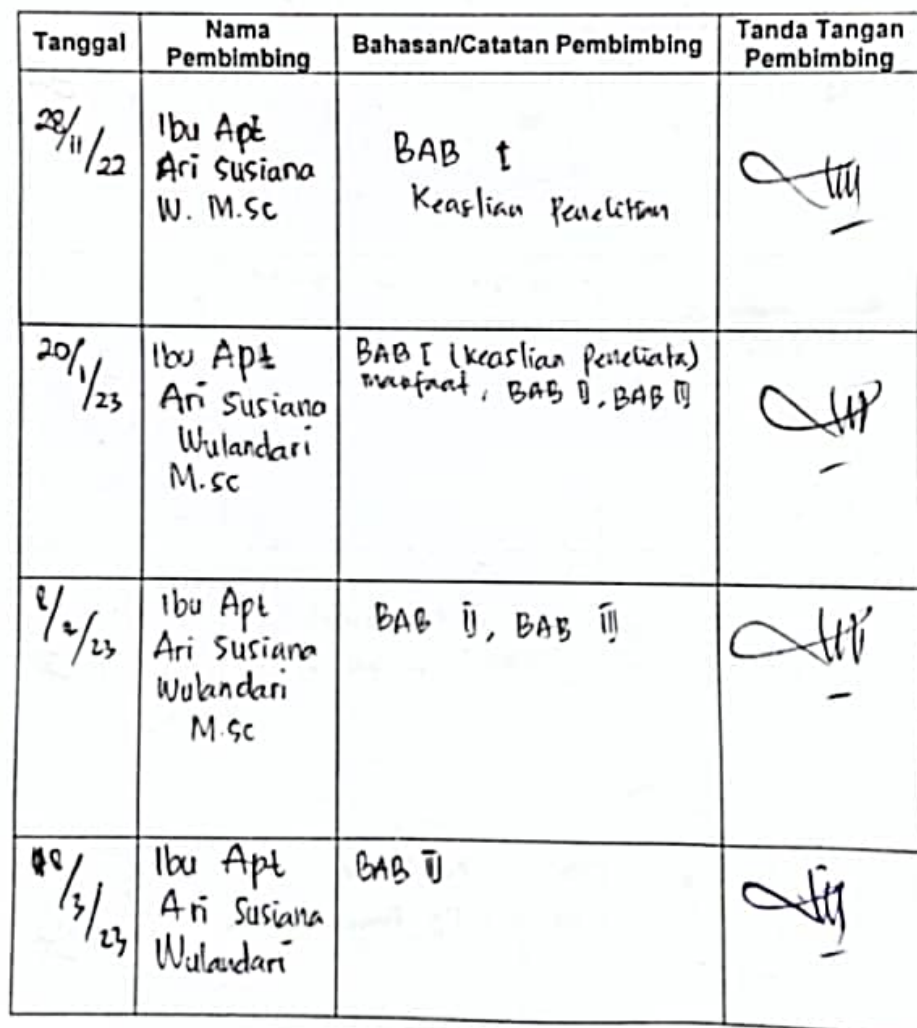 Tanggal
Nama
Pembimbing
Bahasan/Catatan Pembimbing
Tanda Tangan
Pembimbing
28/11/22
Ibu Apt
Ari Susiana
W. M.Sc
BAB I
Keaslian Penelitian
20/1/23
Ibu Apt
Ari Susiana
Wulandari
M.sc
BAB I (keaslian peneliata)
manfaat, BAB II, BAB III
/2/23
Ibu Apt
Ari Susiana
Wulandari
M.Sc
BAB II, BAB III
/3/23
Ibu Apt
Ari Susiana
Wulandari
BAB II